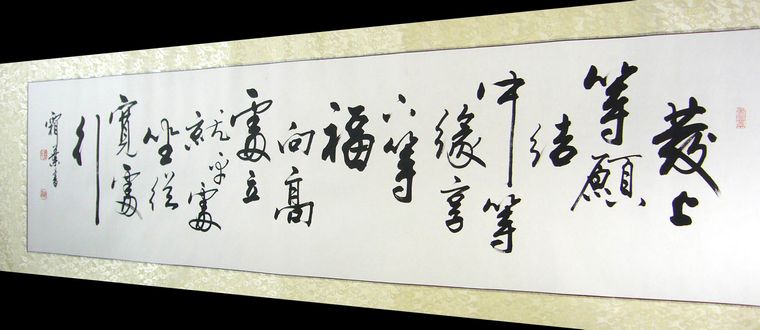 發上
等願
結
中等
緣享
下等
福
向高
處立
就平處
坐從
寬處
行
霜葉書